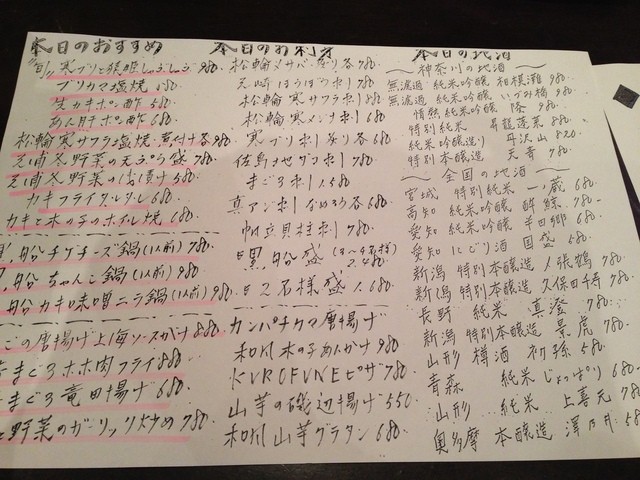 本日のおすすめ
旬 寒ブリと しゃぶしゃぶ 980.
ブリカマ塩焼
生カキポン酢 580
あん肝ポン酢 680
松輪寒サフラ塩焼.煮付 各980
冬野菜の天ぷら盛 780.
冬野菜のお漬け 580
カキフライタルタル 680
カキと木の子のホイル焼 680
黒船チゲチーズ鍋(1人前) 780.
船ちゃんこ鍋(1人前) 980
船カキ味噌ニラ鍋(1人前) 980
の唐揚げ上海ソースがけ 880
まぐろホホ肉フライ 880
まぐろ竜田揚げ 680
野菜のガーリック炒め 780
本日のお刺身
松輪〆サバ 780
刺 980.
松輪寒サフラ刺 980.
松輪寒メジナ刺 680
寒ブリ刺 各680
佐島地ダコ刺 780
まぐろ刺 1.580
真アジ刺 なめろう 各680
帆立貝柱刺 780
黒船盛 (3〜4名様) 2.480
2名様盛 1.680
カンパチカマ唐揚げ
和風木の子あんかけ 980
KUROFUNEピザ 780
山芋の磯辺揚げ 550
和風山芋グラタン 680
本日の地酒
神奈川の地酒
無濾過 純米吟醸 相模灘 980.
無濾過 純米吟醸 いづみ橋 980.
情熱 純米吟醸 隆 980.
特別純米 昇龍蓬莱 880
純米吟醸 丹沢山 820
特別本醸造 天青 780.
全国の地酒
宮城 特別純米 一ノ蔵 680.
高知 純米吟醸 酔鯨 780.
愛知 純米吟醸 半田郷 680.
愛知 にごり酒 国盛 580
新潟 特別本醸造 〆張鶴 780.
新潟 特別本醸造 久保田千寿 780.
長野 純米 真澄 780.
新潟 特別本醸造 景虎 780.
山形 樽酒 初孫 580.
青森 純米 じょっぱり 680
山形 純米 上喜元 780
奥多摩 本醸造 澤乃井 580